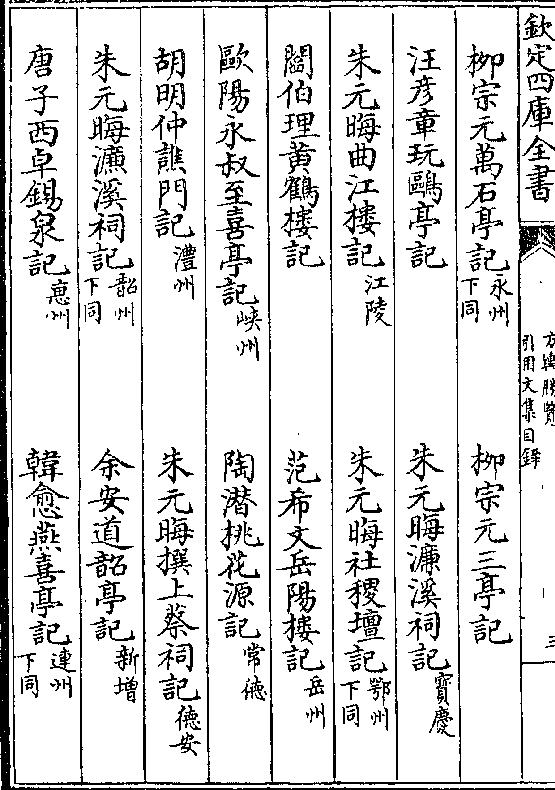 欽定四庫全書
方輿勝覽
引用文集目録
三
柳宗元萬石亭記永州下同 柳宗元三亭記
汪彦章玩鷗亭記 朱元晦濂溪祠記寶慶
朱元晦曲江樓記江陵 朱元晦社稷壇記鄂州下同
閻伯理黄鶴樓記 范希文岳陽樓記岳州
歐陽永叔至喜亭記峽州 陶潛桃花源記常徳
胡明仲譙門記澧州 朱元晦撰上蔡祠記徳安
朱元晦濂溪祠記韶州下同 余安道韶亭記新增
唐子西卓錫泉記惠州 韓愈燕喜亭記連州下同